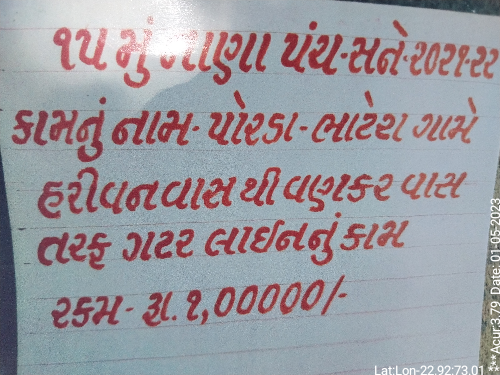 ૧૫ મું નાણા પંચ-સને-૨૦૨૧-૨૨
કામનું નામ- પોરડા- ભાટેરા ગામે
હરીવનવાસ થી વણકર વાસ
તરફ ગટર લાઈનનું કામ
રકમ- રૂા. ૧,૦૦૦૦૦/-
Lat:Lon-22.92:73.01
***Acur:3.79 Date:01-05-2023